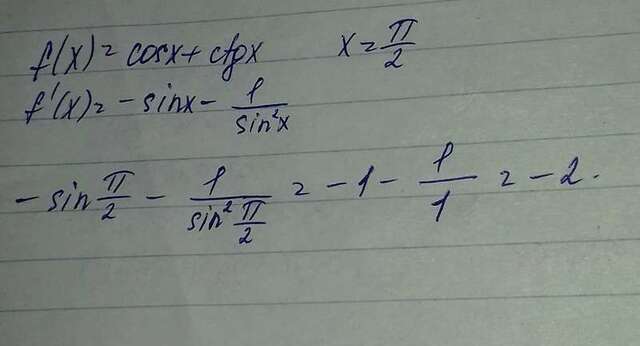 f(x) = cosx + ctgx x = π/2
f'(x) = -sinx - 1/sin²x
-sin π/2 - 1/sin² π/2 = -1 - 1/1 = -2.